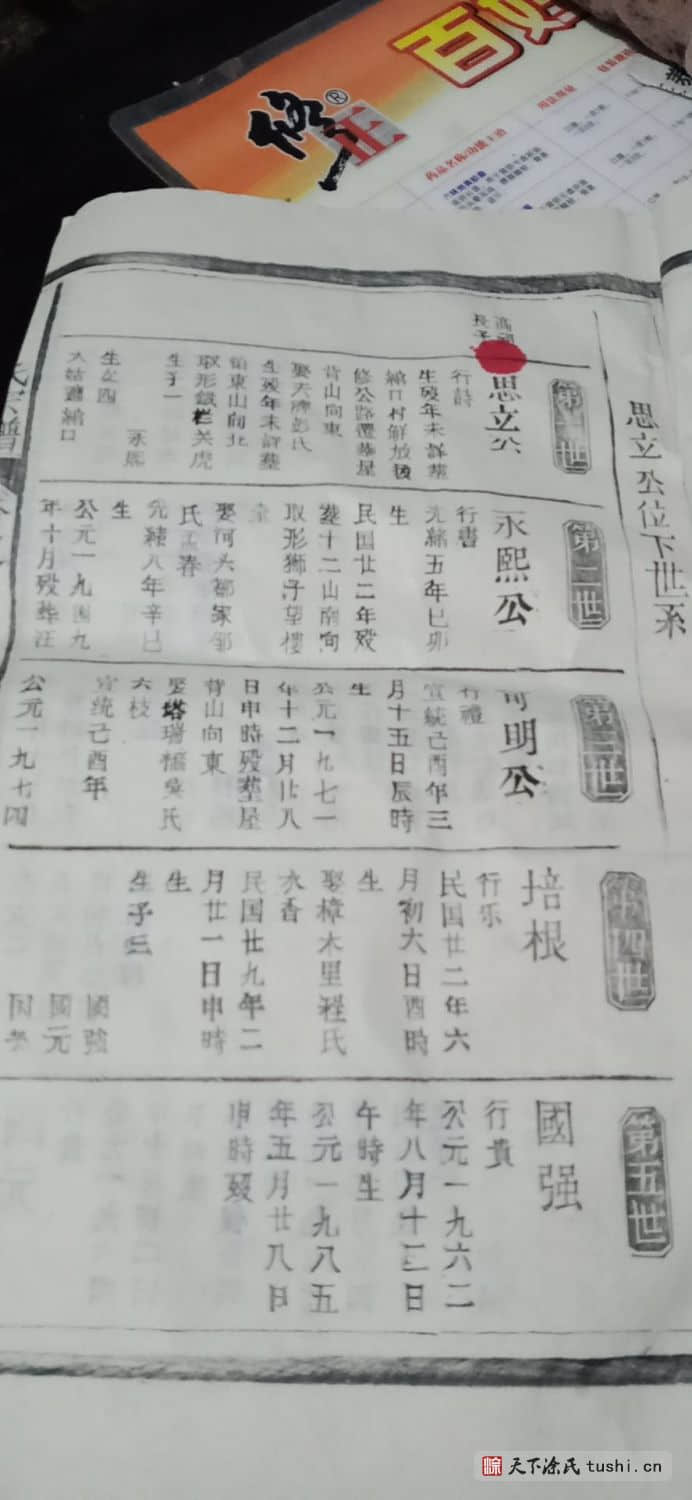 修正
®
百姓
药品名称
功能主治
用法用量
思立公位下世系
第一世
高祖
長子
思立公
行詩
生殁年未詳葬
縮口村解放後
修公路遷葬屋
背山向東
娶天牌彭氏
生殁年未詳葬
嶺東山向北
取形鐵栏关虎
生子一
永熙
生女四
大姑適縮口
第二世
永熙公
行書
光緒五年己卯
生
民国廿二年殁
葬十二山南向
取形獅子望樓
堂
娶河大鄒家邹
氏工春
光緒八年辛巳
生
公元一九四九
年十月殁葬汪
氏宗譜
第三世
明公
行禮
宣統己酉年三
月十五日辰時
生
公元一九七一
年十二月廿八
日申時殁葬屋
背山向東
娶塔瑞福吳氏
六枝
宣統己酉年
公元一九七四
第四世
培根
行乐
民国廿二年六
月初六日酉時
生
娶樟木里程氏
水香
民国廿九年二
月廿一日申時
生
生子三
國強
國元
第五世
國强
行貴
公元一九六二
年八月十三日
午時生
公元一九八五
年五月廿八日
申時殁
天下涂氏tushi.cn